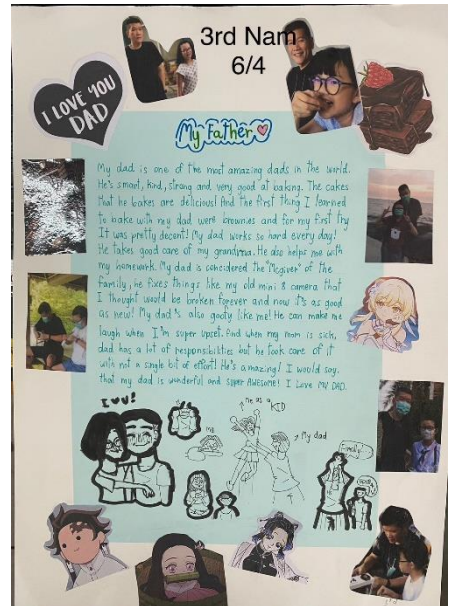 3rd Nam
6/4
I LOVE YOU
DAD
My Father
My dad is one of the most amazing dads in the world.
He's smart, kind, strong and very good at baking. The cakes
that he bakes are delicious! And the first thing I learned
to bake with my dad were brownies and for my first try
It was pretty decent! My dad works so hard every day!
He takes good care of my grandma. He also helps me with
my homework. My dad is considered the "Mcgiver" of the
family, he fixes things like my old mini 8 camera that
I thought would be broken forever and now it's as good
as new! My dad's also goofy like me! He can make me
laugh when I'm super upset. And when my mom is sick,
dad has a lot of responsibilities but he took care of it
with not a single bit of effort! He's amazing! I would say,
that my dad is wonderful and super AWESOME! I LOVE MY DAD.
I ♥ U!
me as a KID
me
My dad